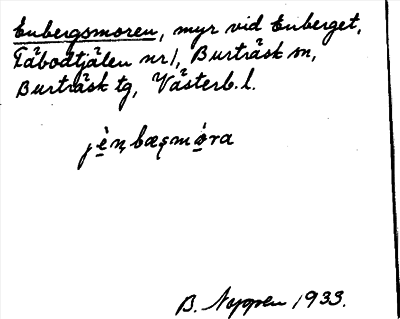 Enbergsmoren, myr vid Enberget,
Fäbodtjälen nr 1, Burträsk sn,
Burträsk tg, Västerb. l.
jèṇbæςmóra
B. Nygren 1933.